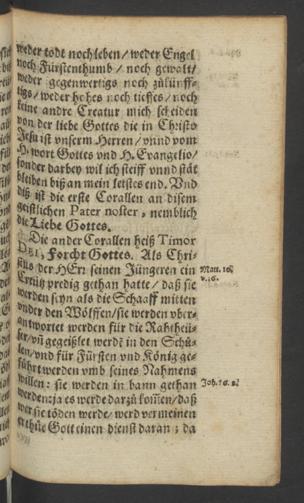 weder todt noch leben / weder Engel
noch Fürstenthumb / noch gewalt /
weder gegenwertigs noch zukünff-
tigs / weder hohes noch tieffes / noch
keine andre Creatur mich scheiden
von der liebe Gottes die in Christo
Jesu ist vnserm Herren / vnnd vom
H. wort Gottes vnd H. Evangelio /
sonder darbey wil ich steiff vnnd stät
bleiben biß an mein letstes end. Vnd
diß ist die erste Corallen an disem
geistlichen Pater noster, nemblich
die Liebe Gottes.
Die ander Corallen heiß Timor
DEI, Forcht Gottes. Als Chri-
stus der HErr seinen Jüngeren ein
Matt. 10.
v. 16.
Creütz predig gethan hatte / daß sie
werden seyn als die Schaaff mitten
vnder den Wölffen / sie werden vber-
antwortet werden für die Rahtheü-
ser / vn gegeißlet werdē in den Schů-
len / vnd für Fürsten vnd König ge-
führt werden vmb seines Nahmens
willen: sie werden in bann gethan
Joh. 16. 2.
werden: ja es werde darzů kom̄en / daß
wer sie töden werde / werd vermeinen
er thüe Gott einen dienst daran: da